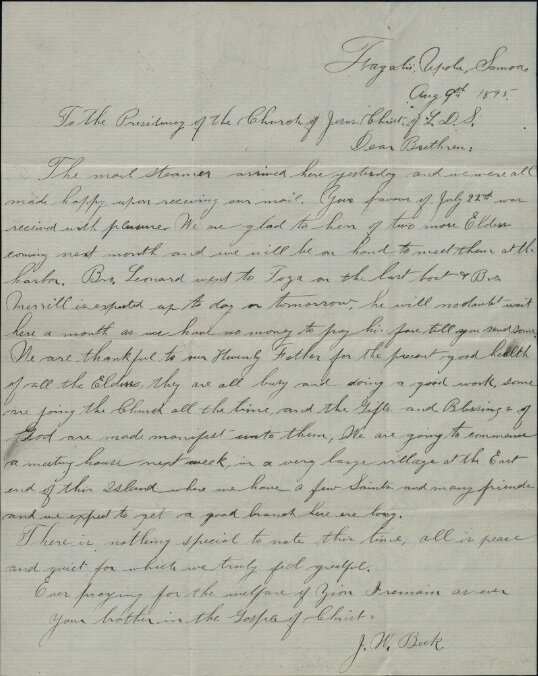 Fagalii, Upolu, Samoa,
Aug 9th 1895.
To the Presidency of the Church of Jesus Christ of L. D. S.
Dear Brethren:
The mail steamer arrived here yesterday and we were all
made happy upon receiving our mail. Your favour of July 22nd was
received with pleasure. We are glad to hear of two more Elders
coming next month and we will be on hand to meet them at the
harbor. Bro. Leonard went to Toga on the last boat & Bro
Merrill is expected up to day or tomorrow, he will no doubt wait
here a month as we have no money to pay his fare till you send some.
We are thankful to our Heavenly Father for the present good health
of all the Elders, they are all busy and doing a good work, some
are joing the Church all the time, and the Gifts and Blessings of
God are made manifest unto them, We are going to commence
a meeting house next week, in a very large village at the East
end of this Island where we have a few Saints and many friends
and we expect to get a good branch here ere long.
There is nothing special to note this time, all is peace
and quiet for which we truly feel grateful.
Ever praying for the welfare of Zion I remain as ever
Your brother in the Gospel of Christ.
J. W. Beck.